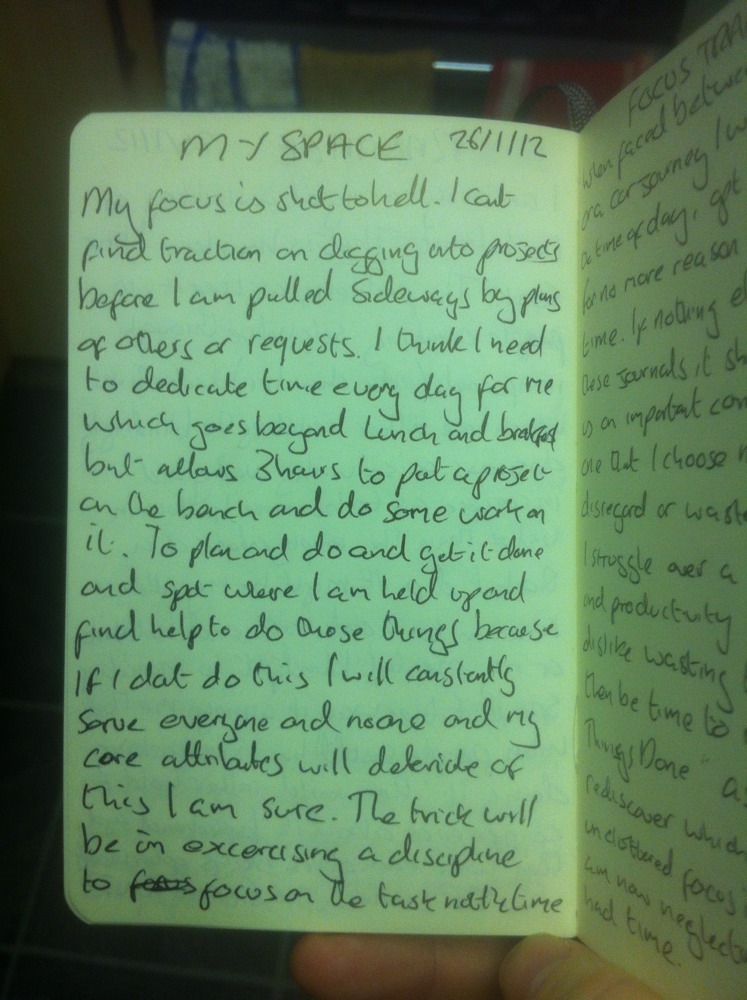 MY SPACE 26/1/12
My focus is shot to hell. I cant
find traction on digging into projects
before I am pulled sideways by plans
of others or requests. I think I need
to dedicate time every day for me
which goes beyond Lunch and breakfast
but allows 3 hours to put a project
on the bench and do some work on
it. To plan and do and get it done
and spot where I am held up and
find help to do those things because
If I dont do this I will constantly
serve everyone and noone and my
core attributes will
this I am sure. The trick will
be in excercising a discipline
to focus on the task not the time
FOCUS
when faced between
or a car journey I
time of day, opt
for no more reason
time. If nothing
these journals, it
is an important
one that I choose
disregard or waste
I struggle over a
and productivity
dislike wasting
then be time to
Things Done" as
rediscover which
uncluttered focus
am now
had time.